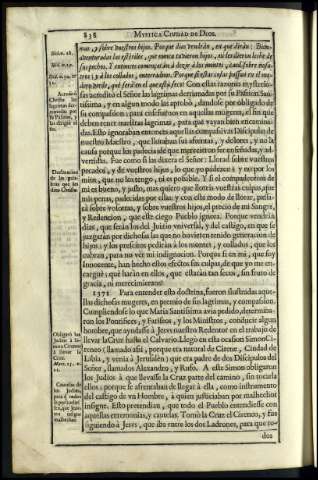 838 MYSTICA CIUDAD DE DIOS.
mas, y sobre vuestros hijos. Porque dias vendràn, en que diràn: Dien-
aventuradas las esteriles, que nunca tuvieron hijos, ni les dieron leche de
sus pechos. Y entonces començaràn à dezir à los montes, caed sobre noso-
tros; y à los collados, enterradnos. Porque si estas cosas passan en el ma-
dero verde, què serà en el que està seco? Con estas razones mysterio-
sas acreditò el Señor las lagrimas derramadas por su Passion Santis-
sima, y en algun modo las aprobò, dandose por obligado de
su compassion; para enseñarnos en aquellas mugeres, el fin que
deben tener nuestras lagrimas, para que vayan bien encamina-
das. Esto ignoraban entonces aquellas compassivas Discipulas de
nuestro Maestro, que lloraban sus afrentas, y dolores, y no la
causa porque los padecia de que merecieron ser enseñadas, y ad-
vertidas. Fue como si las dixera el Señor: Llorad sobre vuestros
pecados, y de vuestros hijos, lo que yo padezco; y no por los
mios, que no los tengo, ni es possible. Y si el compadeceros de
mi es bueno, y justo, mas quiero que lloreis vuestras culpas, que
mis penas, padecidas por ellas; y con este modo de llorar, passa-
rà sobre vosotras, y sobre vuestros hijos, el precio de mi Sangre,
y Redencion, que este ciego Pueblo ignora. Porque vendràn
dias, que seràn los del Juizio vniversal, y del castigo, en que se
juzgaràn por dichosas las que no huvieren tenido generacion de
hijos; y los prescitos pediràn à los montes, y collados, que los
cubran, para no vèr mi indignacion. Porque si en mi, que soy
Innocente, han hecho estos efectos sus culpas, de que yo me en-
carguè; què haràn en ellos, que estaràn tan secos, sin fruto de
gracia, ni merecimientos?
1371 Para entender esta doctrina, fueron ilustradas aque-
llas dichosas mugeres, en premio de sus lagrimas, y compassion.
Cumpliendose lo que Maria Santissima avia pedido, determina-
ron los Pontifices, y Fariseos, y los Ministros, conducir algun
hombre, que ayudasse à Jesvs nuestro Redentor en el trabajo de
llevar la Cruz hasta el Calvario. Llegò en esta ocasion Simon Ci-
reneo (llamado assi, porque era natural de Cirene, Ciudad de
Libia, y venia à Jerusalèn) que era padre de dos Discipulos del
Señor, llamados Alexandro, y Rufo. A este Simon obligaron
los Judios à que llevasse la Cruz parte del camino, sin tocarla
ellos; porque se afrentaban de llegar à ella, como instrumento
del castigo de vn Hombre, à quien justiciaban por malhechor
insigne. Esto pretendian, que todo el Pueblo entendiesse con
aquestas ceremonias, y cautelas. Tomò la Cruz el Cireneo, y fue
siguiendo à Jesvs, que iba entre los dos Ladrones, para que to-
dos